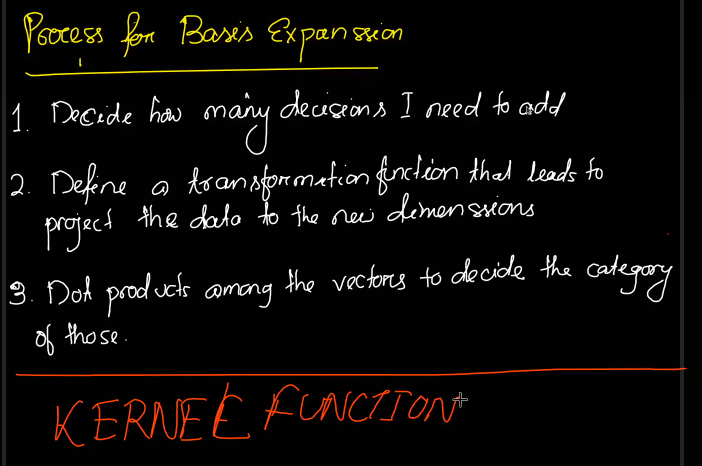 Process for Basis Expansion
1. Decide how many decisions I need to add
2. Define a transformation function that leads to
project the data to the new dimensions
3. Dot products among the vectors to decide the category
of those.
KERNEL FUNCTION